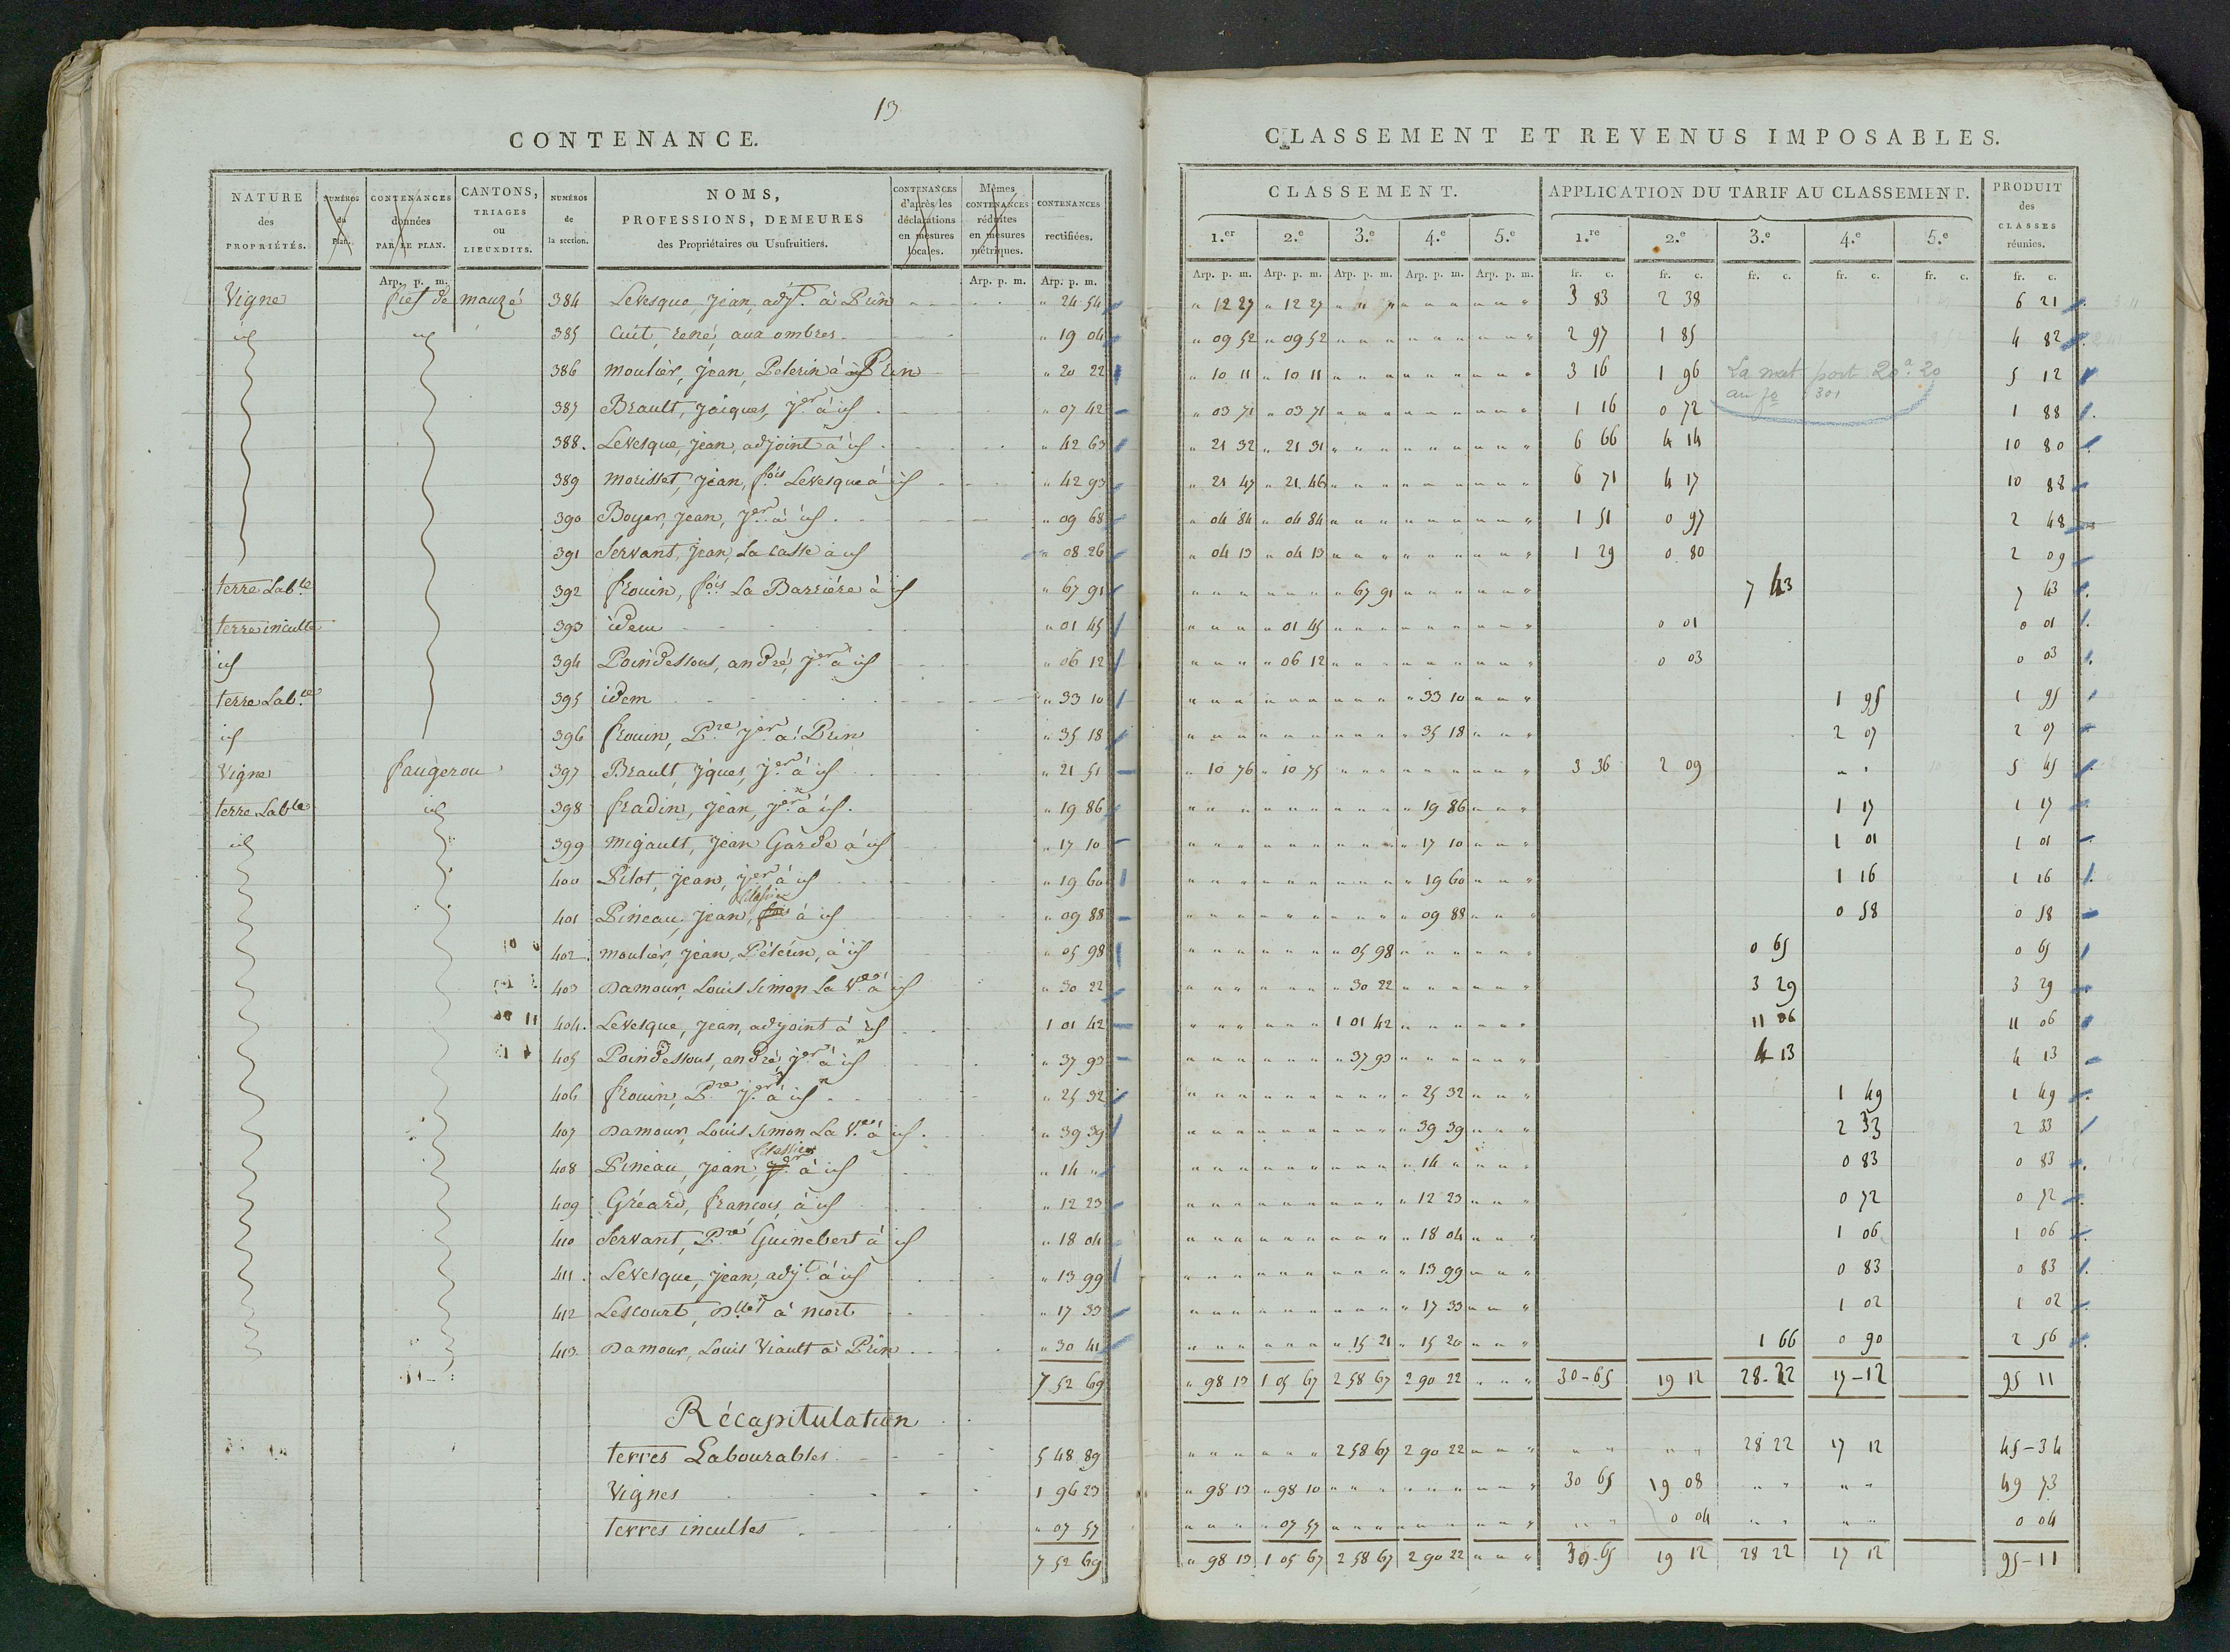 13
CONTENANCE.
NATURE des PROPRIÉTÉS. | NUMÉROS du Plan. | CONTENANCES données PAR LE PLAN. | CANTONS, TRIAGES ou LIEUXDITS. | NUMÉROS de la section. | NOMS, PROFESSIONS, DEMEURES des Propriétaires ou Usufruitiers. | CONTENANCES d'après les déclarations en mesures locales. | Mêmes CONTENANCES réduites en mesures métriques. | CONTENANCES rectifiées.
Arp. p. m. | Arp. p. m. | Arp. p. m.
Vigne fief de mauzé 384 Levesque, Jean, adjt. à Prin " 24 54
id id 385 Cuit, rené, aux ombres " 19 04
386 moulier, Jean, Pelerin à Prin " 20 22
387 Brault, Jacques, jer à id " 07 42
388. Levesque, Jean, adjoint à id " 42 63
389 morisset, Jean, fois Levesque à id " 42 93
390 Boyer, Jean, jer à id " 09 68
391 Servant, Jean, La casse à id " 08 26
terre Lable 392 frouin, fois La Barriére à id " 67 91
terre inculte 393 idem " 01 45
id 394 Poindessous, andré, jer à id " 06 12
terre Lable 395 idem " 33 10
id 396 frouin, Pre jer à Prin " 35 18
Vigne faugerou 397 Brault, Jques, jer à id " 21 51
terre Lable id 398 fradin, Jean, jer à id " 19 86
id 399 migault, Jean Garde à id " 17 10
400 Pilot, Jean, jer à id " 19 60
401 Pineau, Jean, fois à id " 09 88
402 moulier, Jean, Pélérin, à id " 05 98
403 Damour, Louis Simon La Ve à id " 30 22
404. Levesque, Jean, adjoint à id 1 01 42
405 Poindessous, andré, jer à id " 37 93
406 frouin, Pre jer à id " 25 32
407 Damour, Louis Simon La Ve à id " 39 39
408 Pineau, Jean, jer à id " 14 "
409 Gréard, francois, à id " 12 23
410 Servant, Pre Guinebert à id " 18 04
411 Levesque, Jean, adjt. à id " 13 99
412 Lescourt, Dlle à niort " 17 33
413 Damour, Louis Viault à Prin " 30 41
7 52 69
Récapitulation
terres Labourables 5 48 89
Vignes 1 96 23
terres incultes " 07 57
7 52 69
CLASSEMENT ET REVENUS IMPOSABLES.
CLASSEMENT. | APPLICATION DU TARIF AU CLASSEMENT. | PRODUIT des CLASSES réunies.
1.er | 2.e | 3.e | 4.e | 5.e | 1.re | 2.e | 3.e | 4.e | 5.e
Arp. p. m. | Arp. p. m. | Arp. p. m. | Arp. p. m. | Arp. p. m. | fr. c. | fr. c. | fr. c. | fr. c. | fr. c. | fr. c.
" 12 27 " 12 27 3 83 2 38 6 21
" 09 52 " 09 52 2 97 1 85 4 82
" 10 11 " 10 11 3 16 1 96 La mat port 20a. 20 5 12
au fo 301
" 03 71 " 03 71 1 16 0 72 1 88
" 21 32 " 21 31 6 66 4 14 10 80
" 21 47 " 21 46 6 71 4 17 10 88
" 04 84 " 04 84 1 51 0 97 2 48
" 04 13 " 04 13 1 29 0 80 2 09
" 67 91 7 43 7 43
" 01 45 0 01 0 01
" 06 12 0 03 0 03
" 33 10 1 95 1 95
" 35 18 2 07 2 07
" 10 76 " 10 75 3 36 2 09 " " 5 45
" 19 86 1 17 1 17
" 17 10 1 01 1 01
" 19 60 1 16 1 16
" 09 88 0 58 0 58
" 05 98 0 65 0 65
" 30 22 3 29 3 29
1 01 42 11 06 11 06
" 37 93 4 13 4 13
" 25 32 1 49 1 49
" 39 39 2 33 2 33
" 14 " 0 83 0 83
" 12 23 0 72 0 72
" 18 04 1 06 1 06
" 13 99 0 83 0 83
" 17 33 1 02 1 02
" 15 21 " 15 20 1 66 0 90 2 56
" 98 13 1 05 67 2 58 67 2 90 22 " " " 30-65 19 12 28-22 17-12 95 11
2 58 67 2 90 22 " " " " " " " 28 22 17 12 45-34
" 98 13 " 98 10 30 65 19 08 " " " " 49 73
" 07 57 " " 0 04 " " " " 0 04
" 98 13 1 05 67 2 58 67 2 90 22 " " " 30-65 19 12 28 22 17 12 95-11